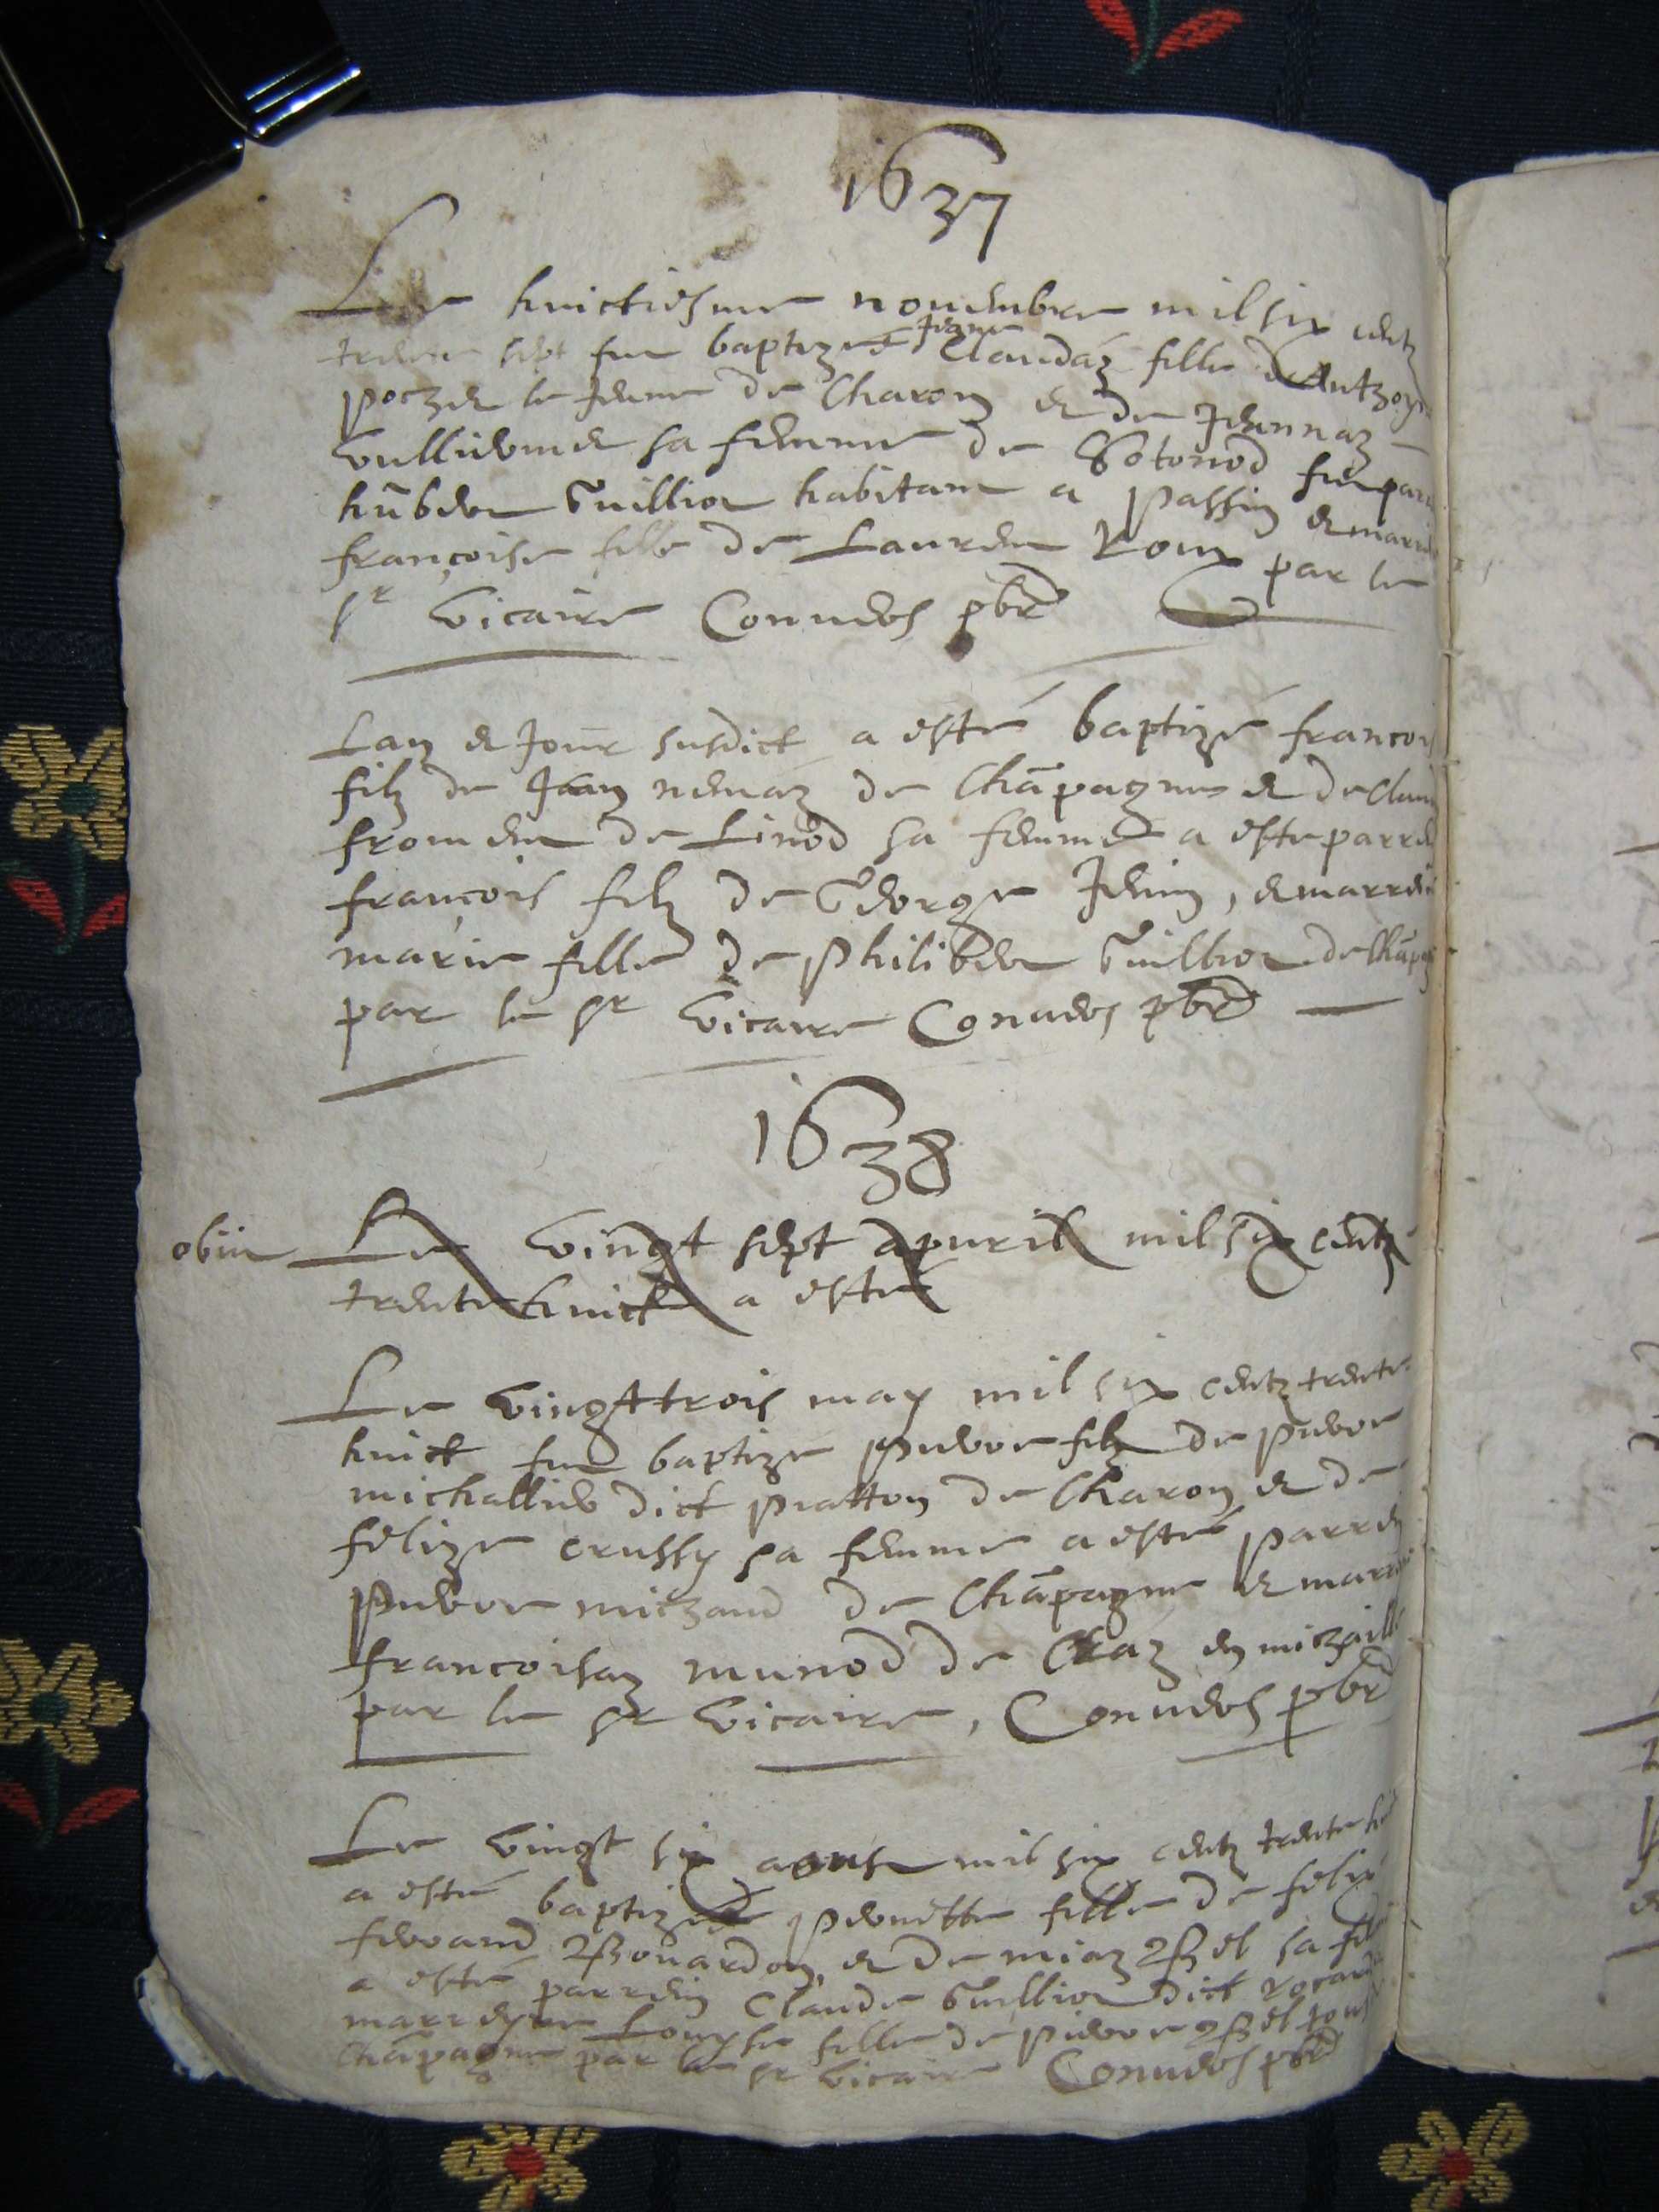 1637
Le huictiesme nouembre mil six centz
trente sept fut baptizee Jeane Claudaz fille d'Antzoyne
poczet le Jeune de Charon et de Jeannaz
Vulliermet sa femme de Sotonod fut parr
hubert Guilliot habitant a passin et marr
françoise fille de Laurent Roux par le
sr vicaire Conuers pbr
Lan et Jour susdict a esté baptizé francois
filz de Jean neuaz de Chãpagnes et de Clau
froment de Linod sa femme a este parr
françois filz de George Jenin, et marr
marie fille de philibert Guilliot de Chãpag
par le sr vicaire Conuers pbr
1638
obiit Le vingt sept apuril mil six centz
trente huict a esté
Le vingttrois may mil six centz trente
huict fut baptize pierre filz de pierre
michallier dict pratton de Charon et de
felize crussy sa femme a esté parrein
pierre miczaud de Chãpagne et marr
francoisaz munod de Chaz en miczaille
par le sr vicaire, Conuers pbr
Le vingt six aoust mil six centz trente hu
a esté baptizee pernette fille de felix
ferrand, Bouardon, et de miaz sa fe
a esté parrein Claude Guilliot dict rocard
marreyne Louyse fille de pierre
Chãpagne par le sr vicaire Conuers pbr